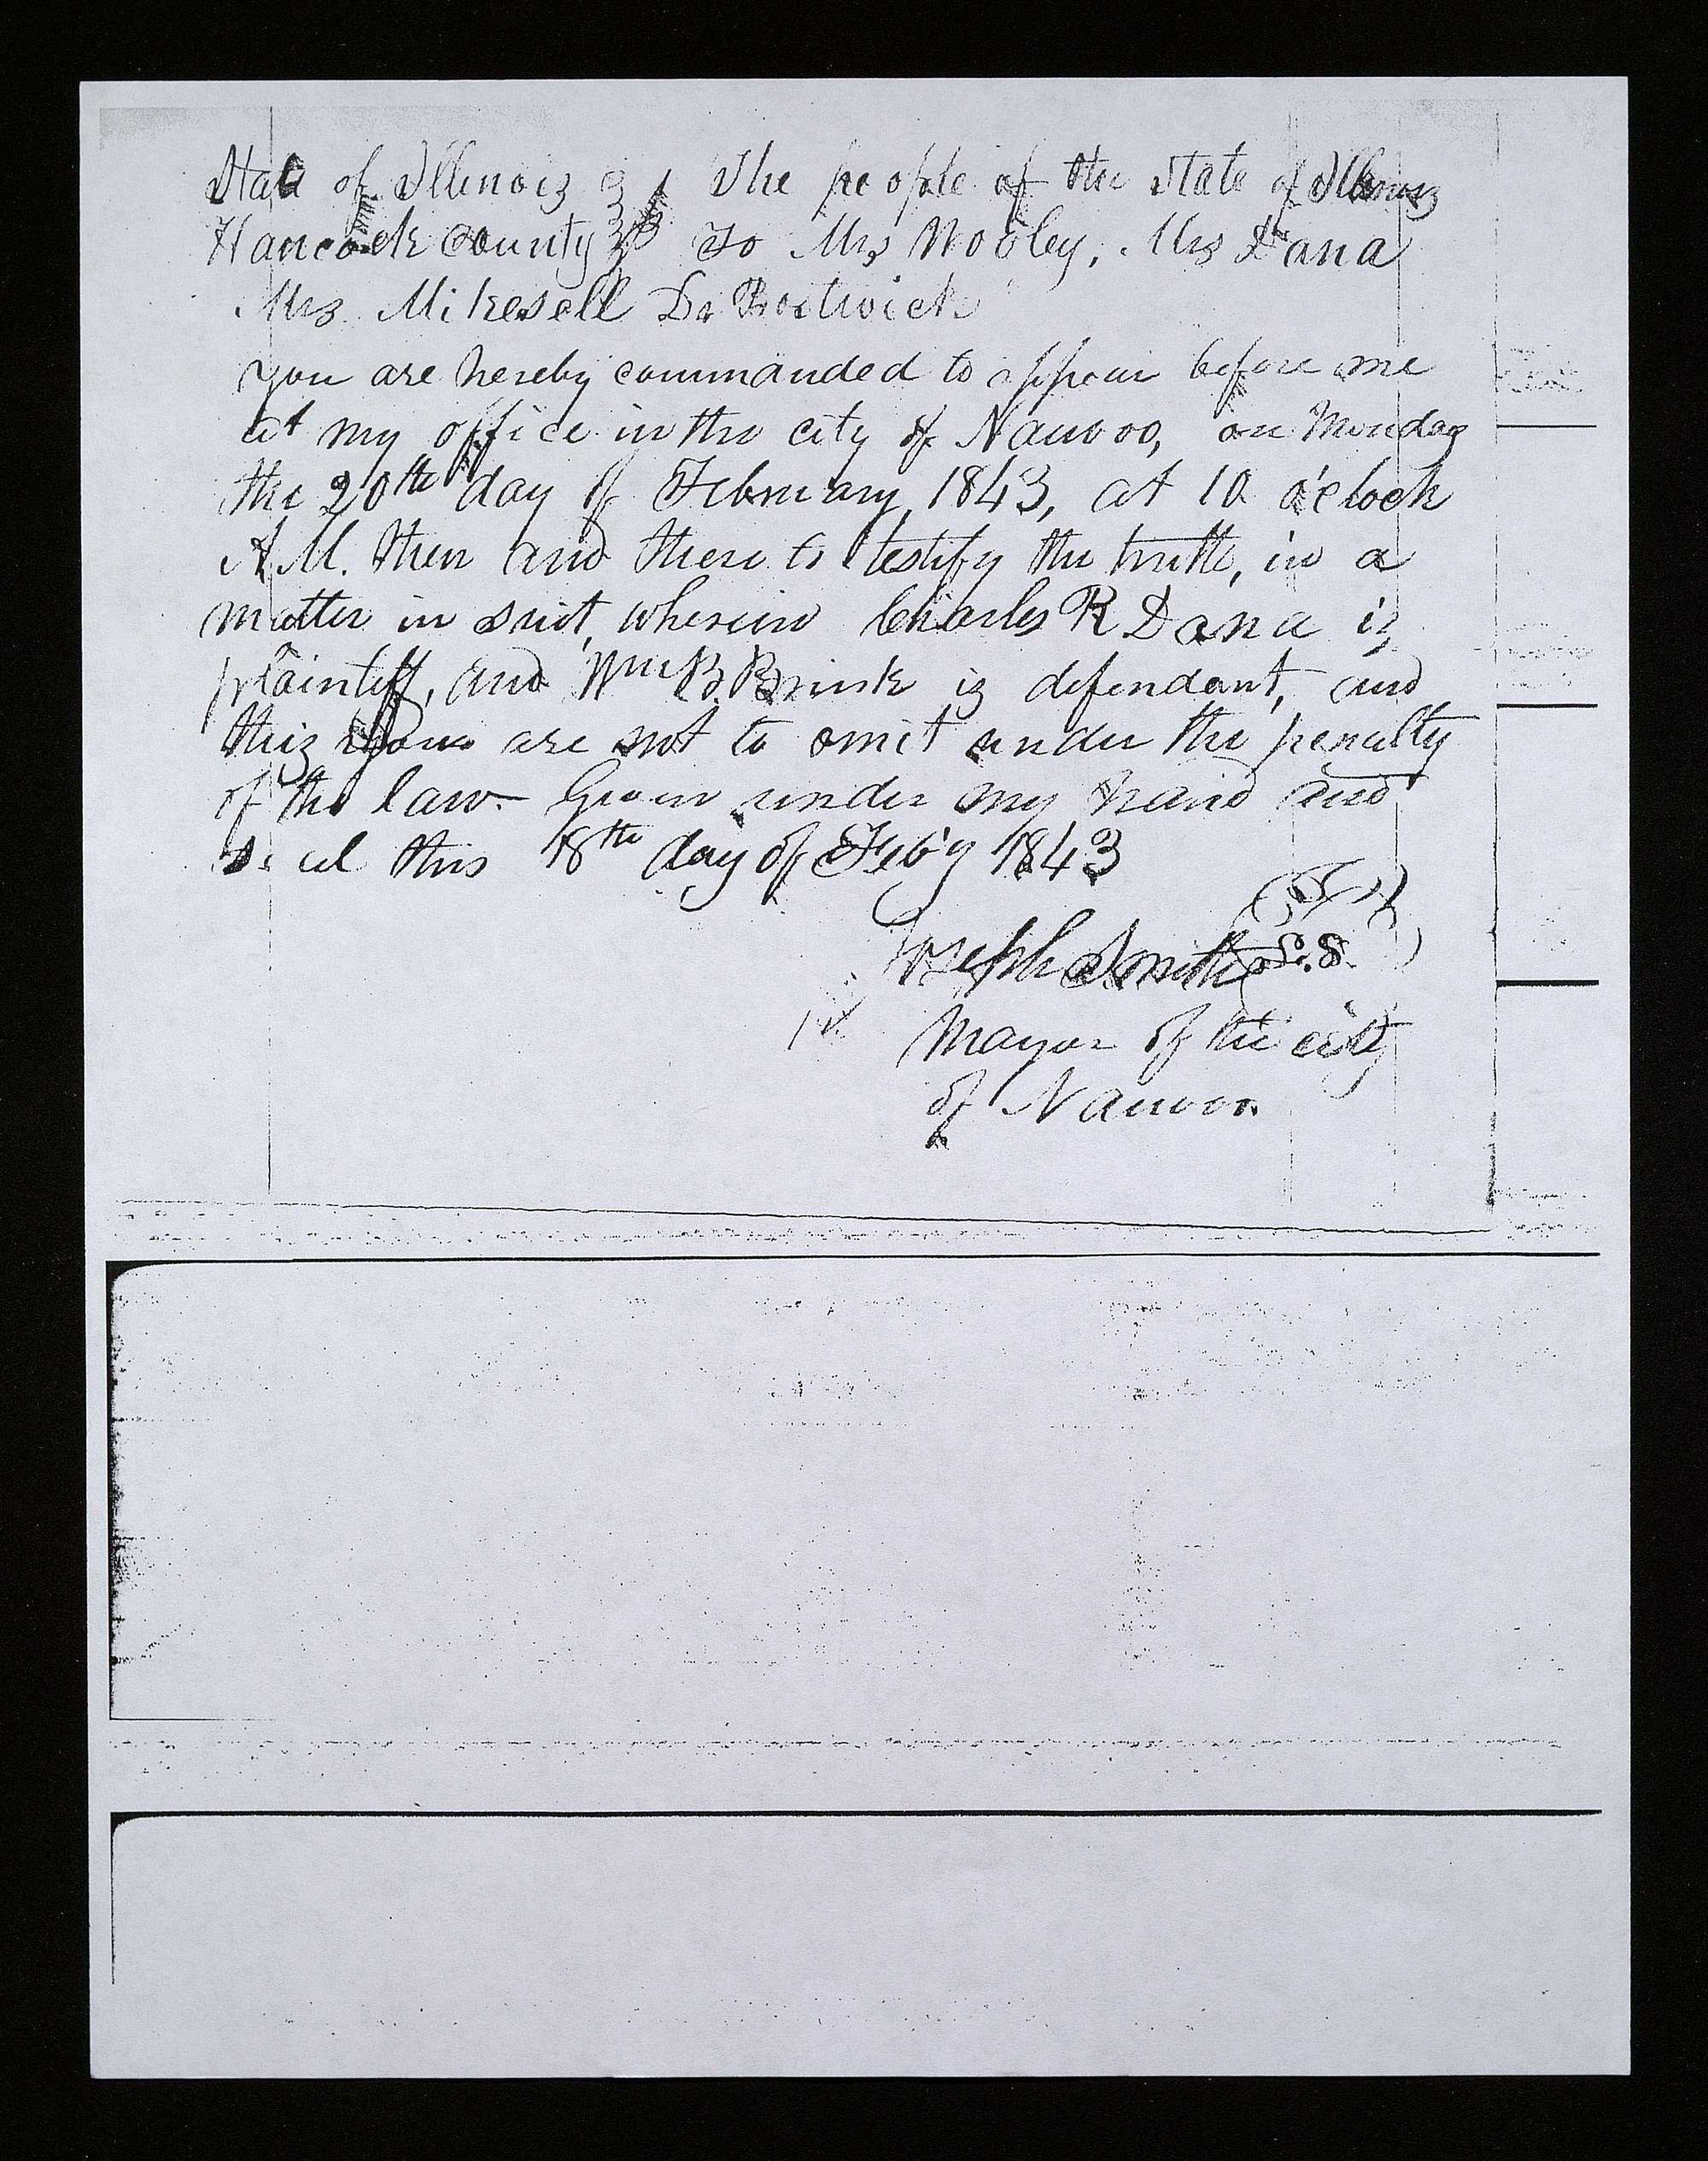 State of Illinois } ss The people of the State of Illinois
Hancock county } To Mrs Wooley, Mrs Dana
Mrs. Mikesell Dr Bostwick
you are hereby commanded to appear before me
at my office in the city of Nauvoo, on Monday
the 20th day of February, 1843, at 10 o'clock
A.M. then and there to testify the truth, in a
matter in suit, wherein Charles R Dana is
plaintiff, and Wm B. Brink is defendant, and
this you are not to omit under the penalty
of the law. Given under my hand and
seal this 18th day of Feb'y 1843
Joseph Smith L.S.
Mayor of the city
of Nauvoo.